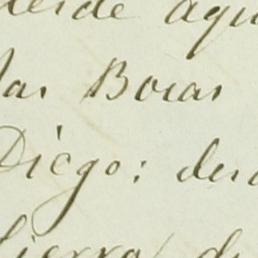 desde aqu
las Bocas
Diego: des
Sierra de